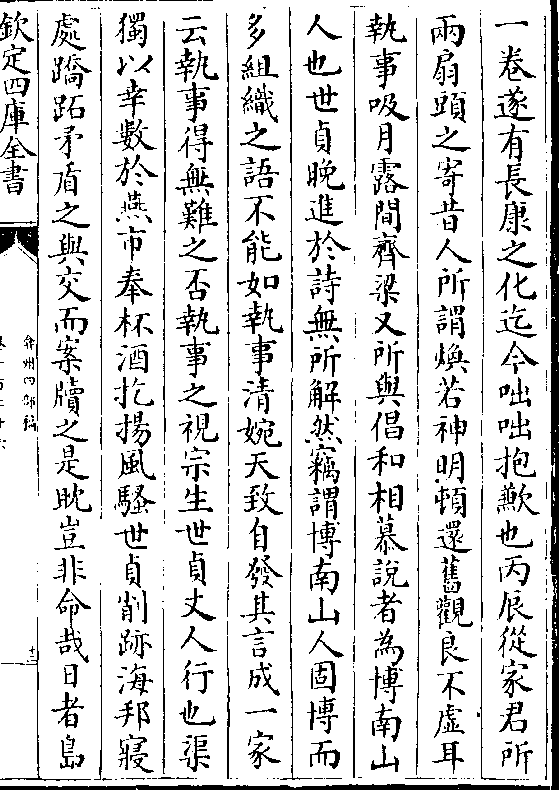 一卷遂有長康之化迄今咄咄抱歉也丙辰從家君所
兩扇頭之寄昔人所謂煥若神明頓還舊觀良不虛耳
執事吸月露間齊梁又所與倡和相慕說者為博南山
人也世貞晚進於詩無所解然竊謂博南山人固博而
多組織之語不能如執事清婉天致自發其言成一家
云執事得無難之否執事之視宗生世貞丈人行也渠
獨以幸數於燕市奉杯酒扢揚風騷世貞削跡海邦寢
處蹻跖矛盾之與交而案牘之是耽豈非命哉日者島
欽定四庫全書
弇州四部稿
十三